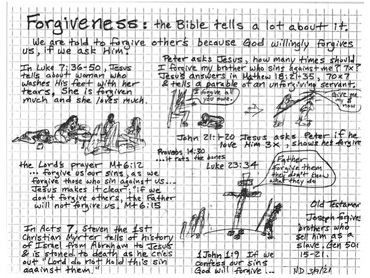 Forgiveness: the Bible tells a lot about it.
We are told to forgive others because God willingly forgives
us, if we ask Him.
In Luke 7:36-50, Jesus
tells about woman who
washes His feet with her
tears, She is forgiven
much and she loves much.
Peter asks Jesus, how many times should
I forgive my brother who sins against me? 7x?
Jesus answers in Mathew 18:21-35, 70x7
& tells a parable of an unforgiving servant.
I forgive all
you owe
me
now
John 21:1-20 Jesus asks Peter if he
love Him 3x, shows he forgave
Proverbs 14:30
...it rots the bones
Luke 23:34
the Lord's prayer Mt 6:12
... forgive us our sins, as we
forgive those who sin against us...
Jesus makes it clear, "if we
don't forgive others, the Father
will not forgive us. Mt 6:15
Father
forgive them
they don't know
what they do
In Acts 7, Steven the 1st
Christian Myrter tells of history
of Israel from Abraham to Jesus
& is stoned to death as he cries
out "Lord do not hold this sin
against them."
1 John 1:9 If we
confess our sins
God will forgive...
Old Testament
Joseph forgive
brothers who
sell him as a
slave. Gen 50:
15-21.